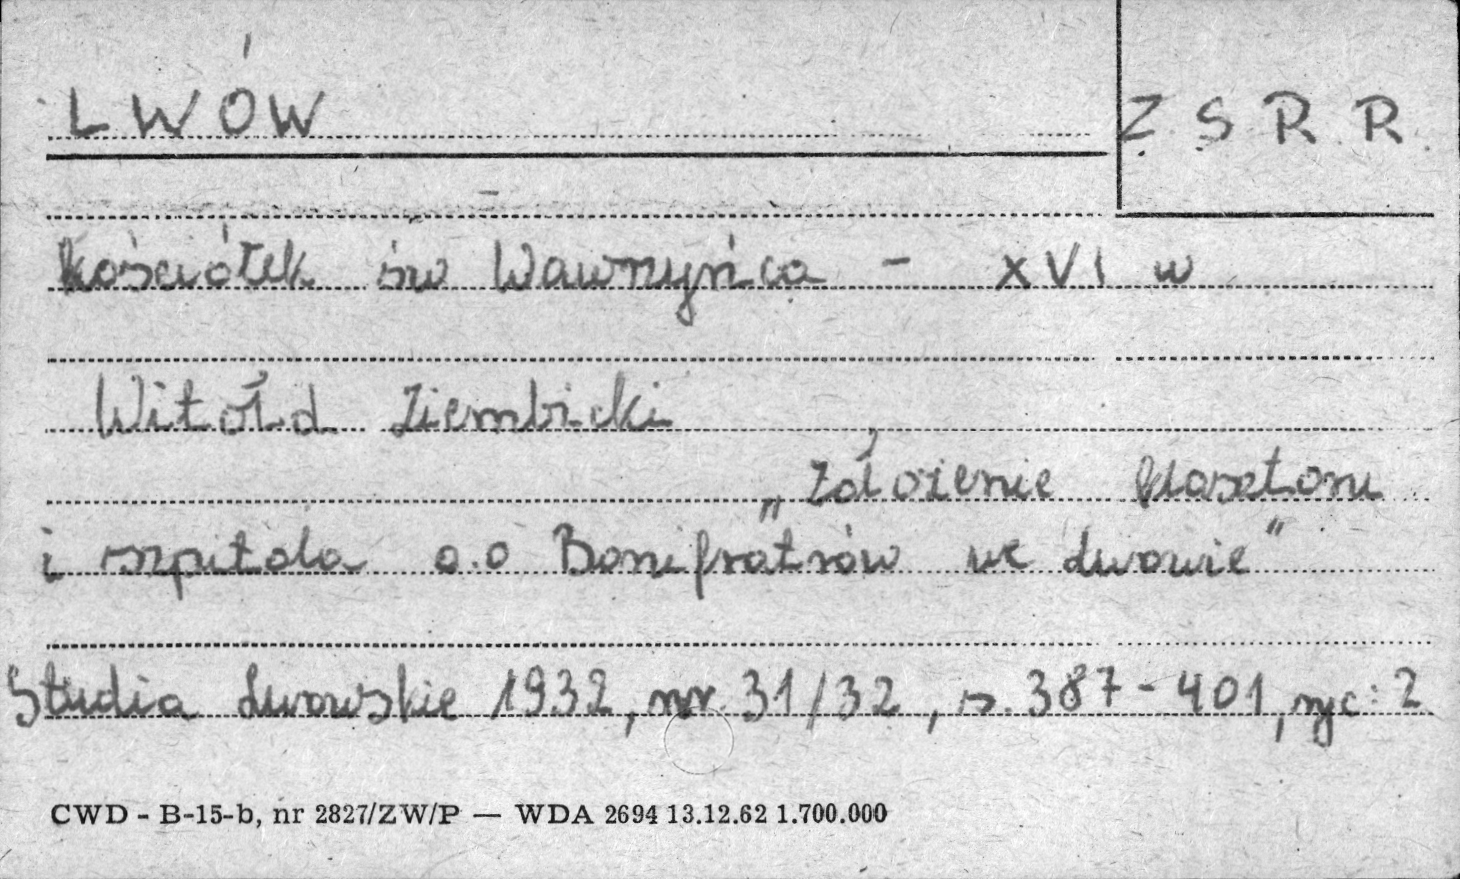 LWÓW
ZSRR
Kościółek św Wawrzyńca - XVI w
Witołd Ziembicki
„Założenie klasztoru
i szpitala o.o Bonifratrów we Lwowie"
Studia Lwowskie 1932, nr. 31/32, s. 387-401, ryc: 2
CWD - B-15-b, nr 2827/ZW/P — WDA 2694 13.12.62 1.700.000